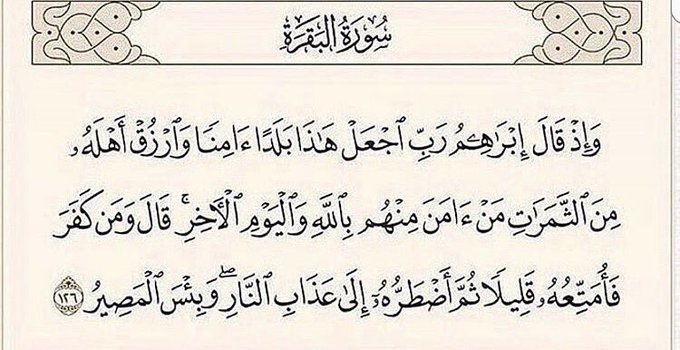 سُورَةُ البَقَرَةِ
وَإِذْ قَالَ إِبْرَٰهِـۧمُ رَبِّ ٱجْعَلْ هَـٰذَا بَلَدًا ءَامِنًا وَٱرْزُقْ أَهْلَهُۥ
مِنَ ٱلثَّمَرَٰتِ مَنْ ءَامَنَ مِنْهُم بِٱللَّهِ وَٱلْيَوْمِ ٱلْـَٔاخِرِ ۖ قَالَ وَمَن كَفَرَ
فَأُمَتِّعُهُۥ قَلِيلًا ثُمَّ أَضْطَرُّهُۥٓ إِلَىٰ عَذَابِ ٱلنَّارِ ۖ وَبِئْسَ ٱلْمَصِيرُ ١٢٦